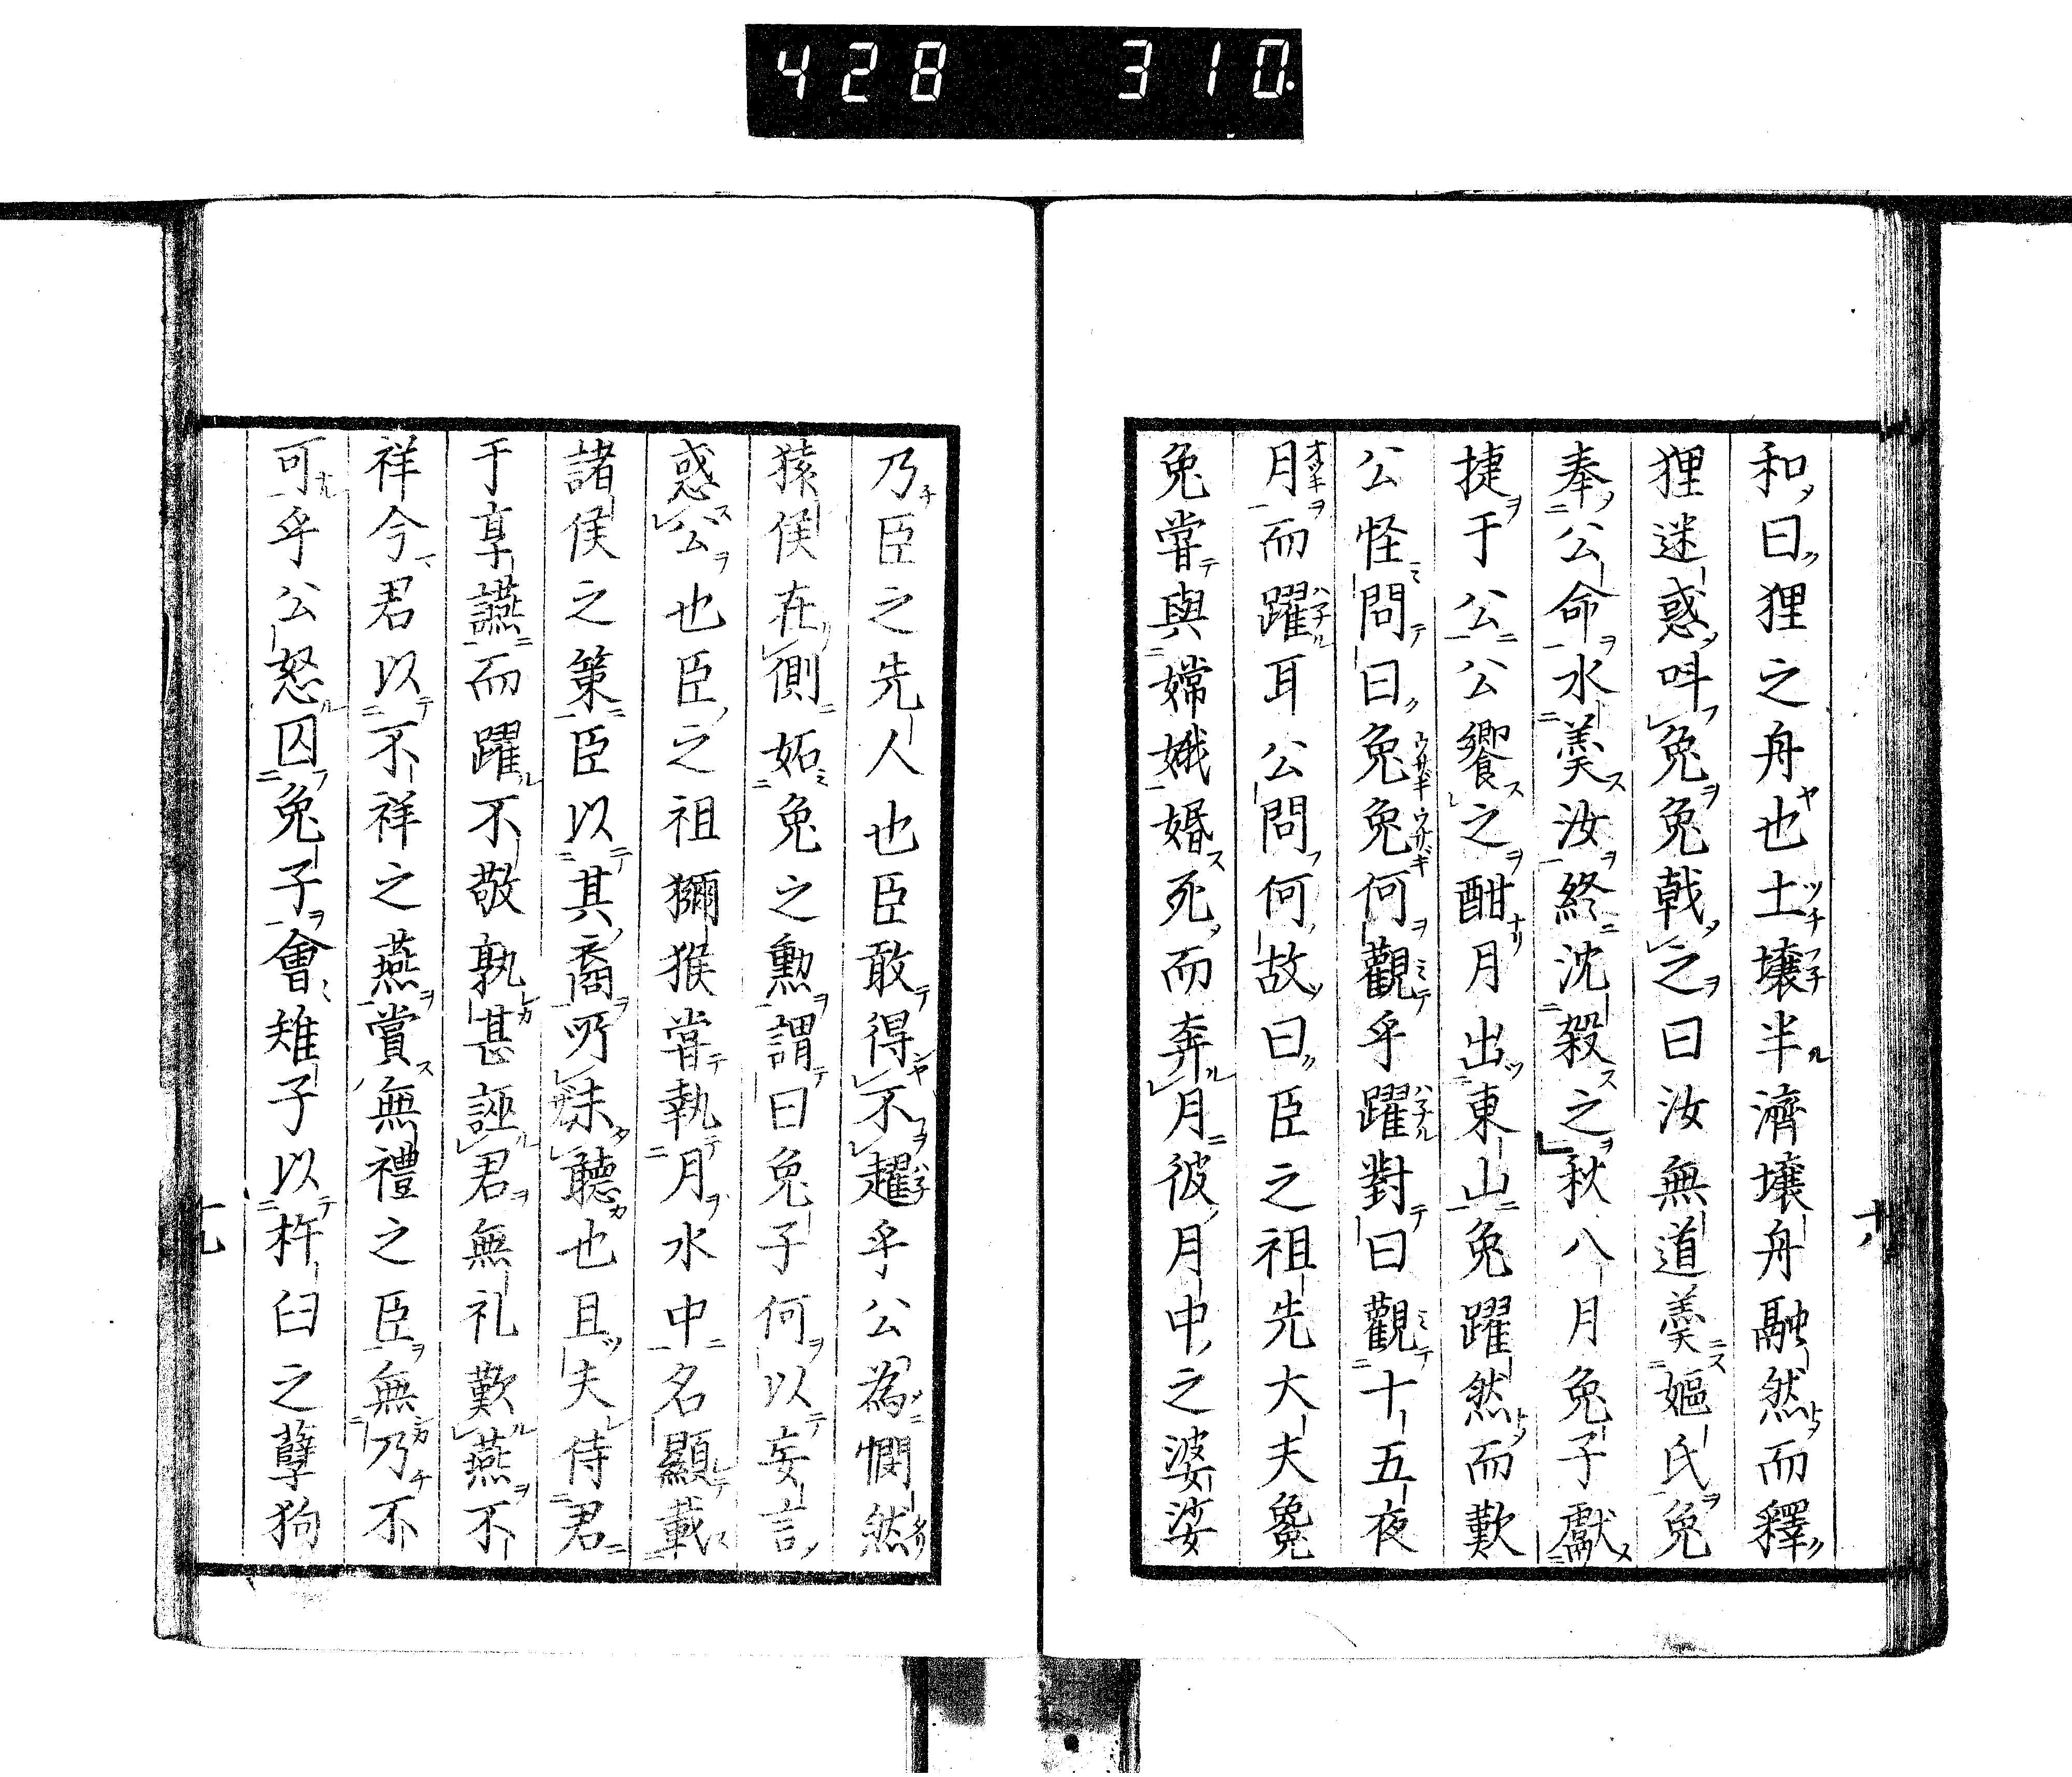 428 310.
和曰狸之舟也土壌半濟壌舟融然而釋
狸迷惑呌兔兔戟之曰汝無道羮嫗氏兔
奉公命水羮汝終沈殺之秋八月兔子獻
捷于公公饗之酣月出東山兔躍然而歎
公怪問曰兔兔何觀乎躍對曰觀十五夜
月而躍耳公問何故曰臣之祖先大夫毚
兔嘗與嫦娥婚死而奔月彼月中之婆娑
十八
乃臣之先人也臣敢得不趯乎公為憫然
猿侯在側妬兔之勲謂曰兔子何以妄言
惑公也臣之祖獼猴嘗執月水中名顯載
諸侯之策臣以其裔所未聽也且夫侍君
于享讌而躍不敬孰甚誣君無礼歎燕不
祥今君以不祥之燕賞無禮之臣無乃不
可乎公怒囚兔子會雉子以杵臼之孽狗